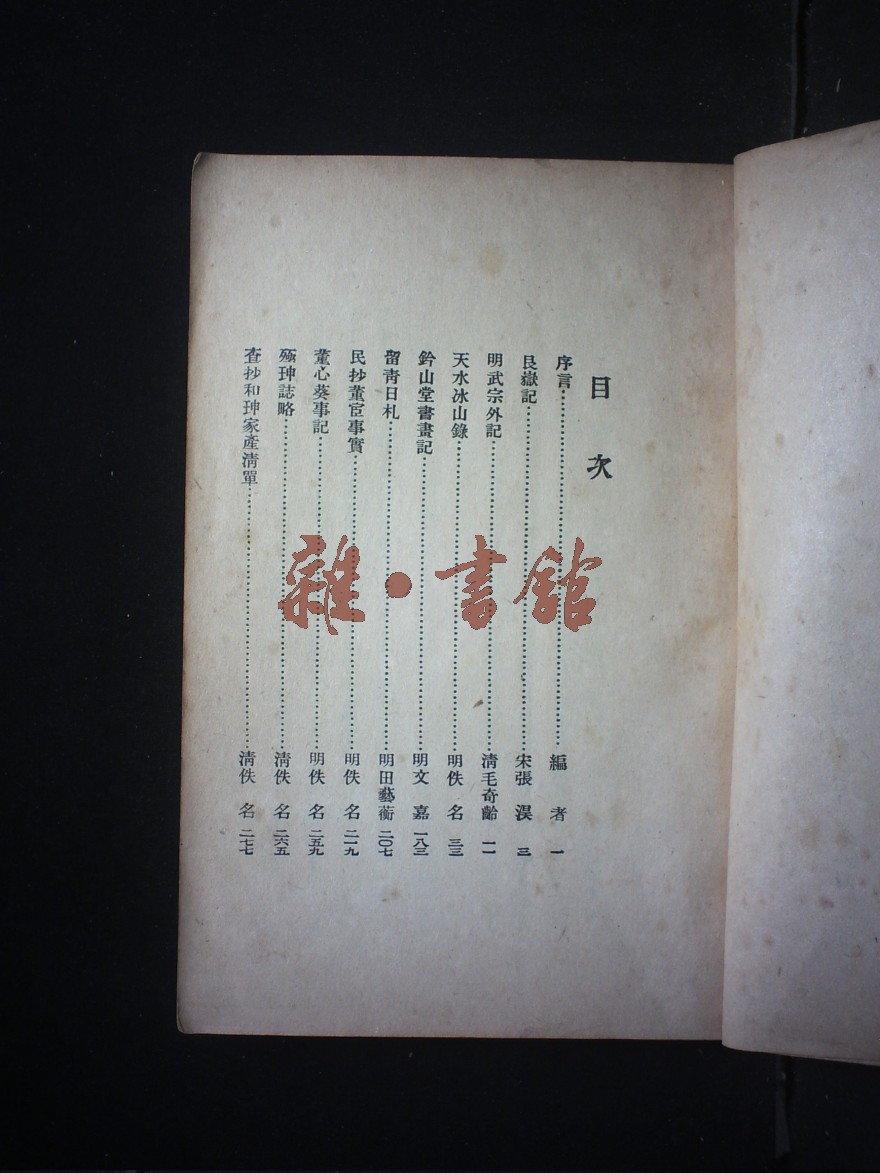 目次
序言 編者 一
艮嶽記 宋張淏 三
明武宗外記 清毛奇齡 一一
天水冰山錄 明佚名 三三
鈐山堂書畫記 明文嘉 一八三
留青日札 明田藝蘅 二〇七
民抄董宦事實 明佚名 二一九
董心葵事記 明佚名 二五九
殛珅誌略 清佚名 二六五
查抄和珅家產清單 清佚名 二七七
雜·書館